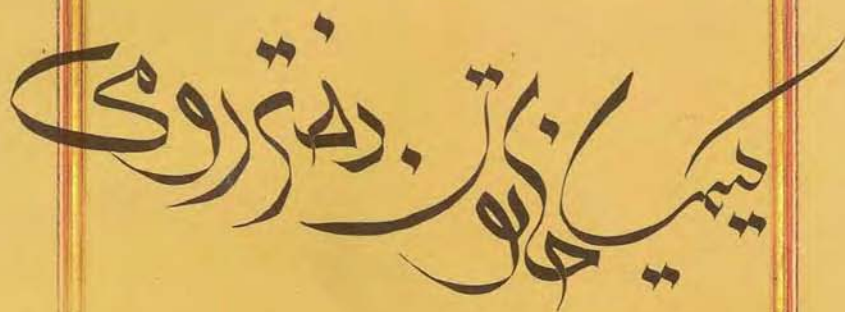 کیمیا خاتون دختر رومی